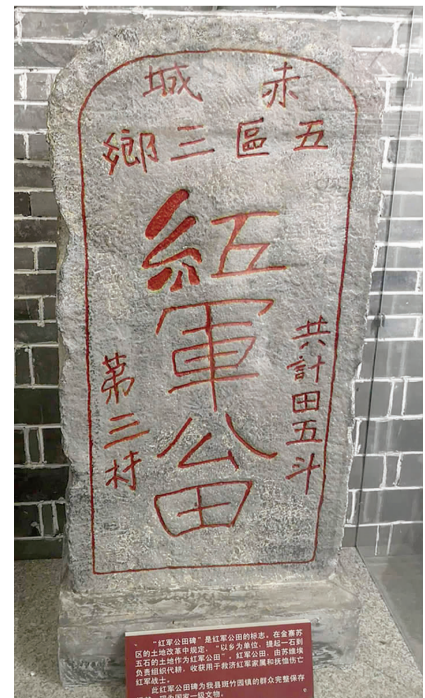 赤城
五區三鄉
共計田五斗
紅軍公田
第三村
“红军公田碑”是红军公田的标志。在金寨苏
区的土地改革中规定，“以乡为单位，提起一石到
五石的土地作为红军公田”。红军公田，由苏维埃
负责组织代耕，收获用于救济红军家属和抚恤伤亡
红军战士。
此红军公田碑为我县斑竹园镇的群众完整保存
现为国家一级文物。